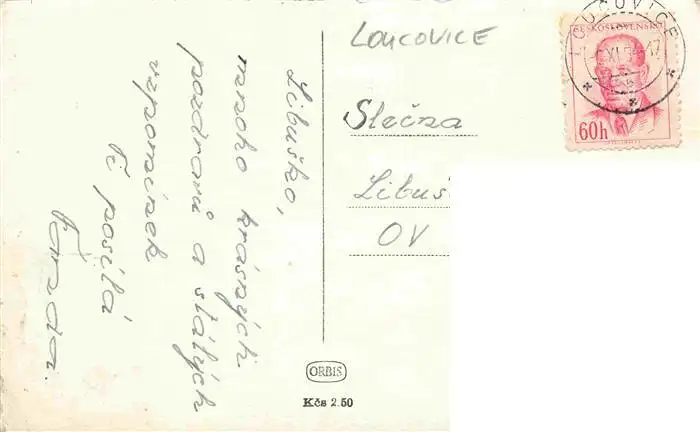 Libuško,
mnoho krásných
pozdravů a stálých
vzpomínek
Ti posílá
LOUCOVICE
Slečna
Libuš
OV
ČESKOSLOVENSKO
60h
LOUČOVICE
ORBIS
Kčs 2.50